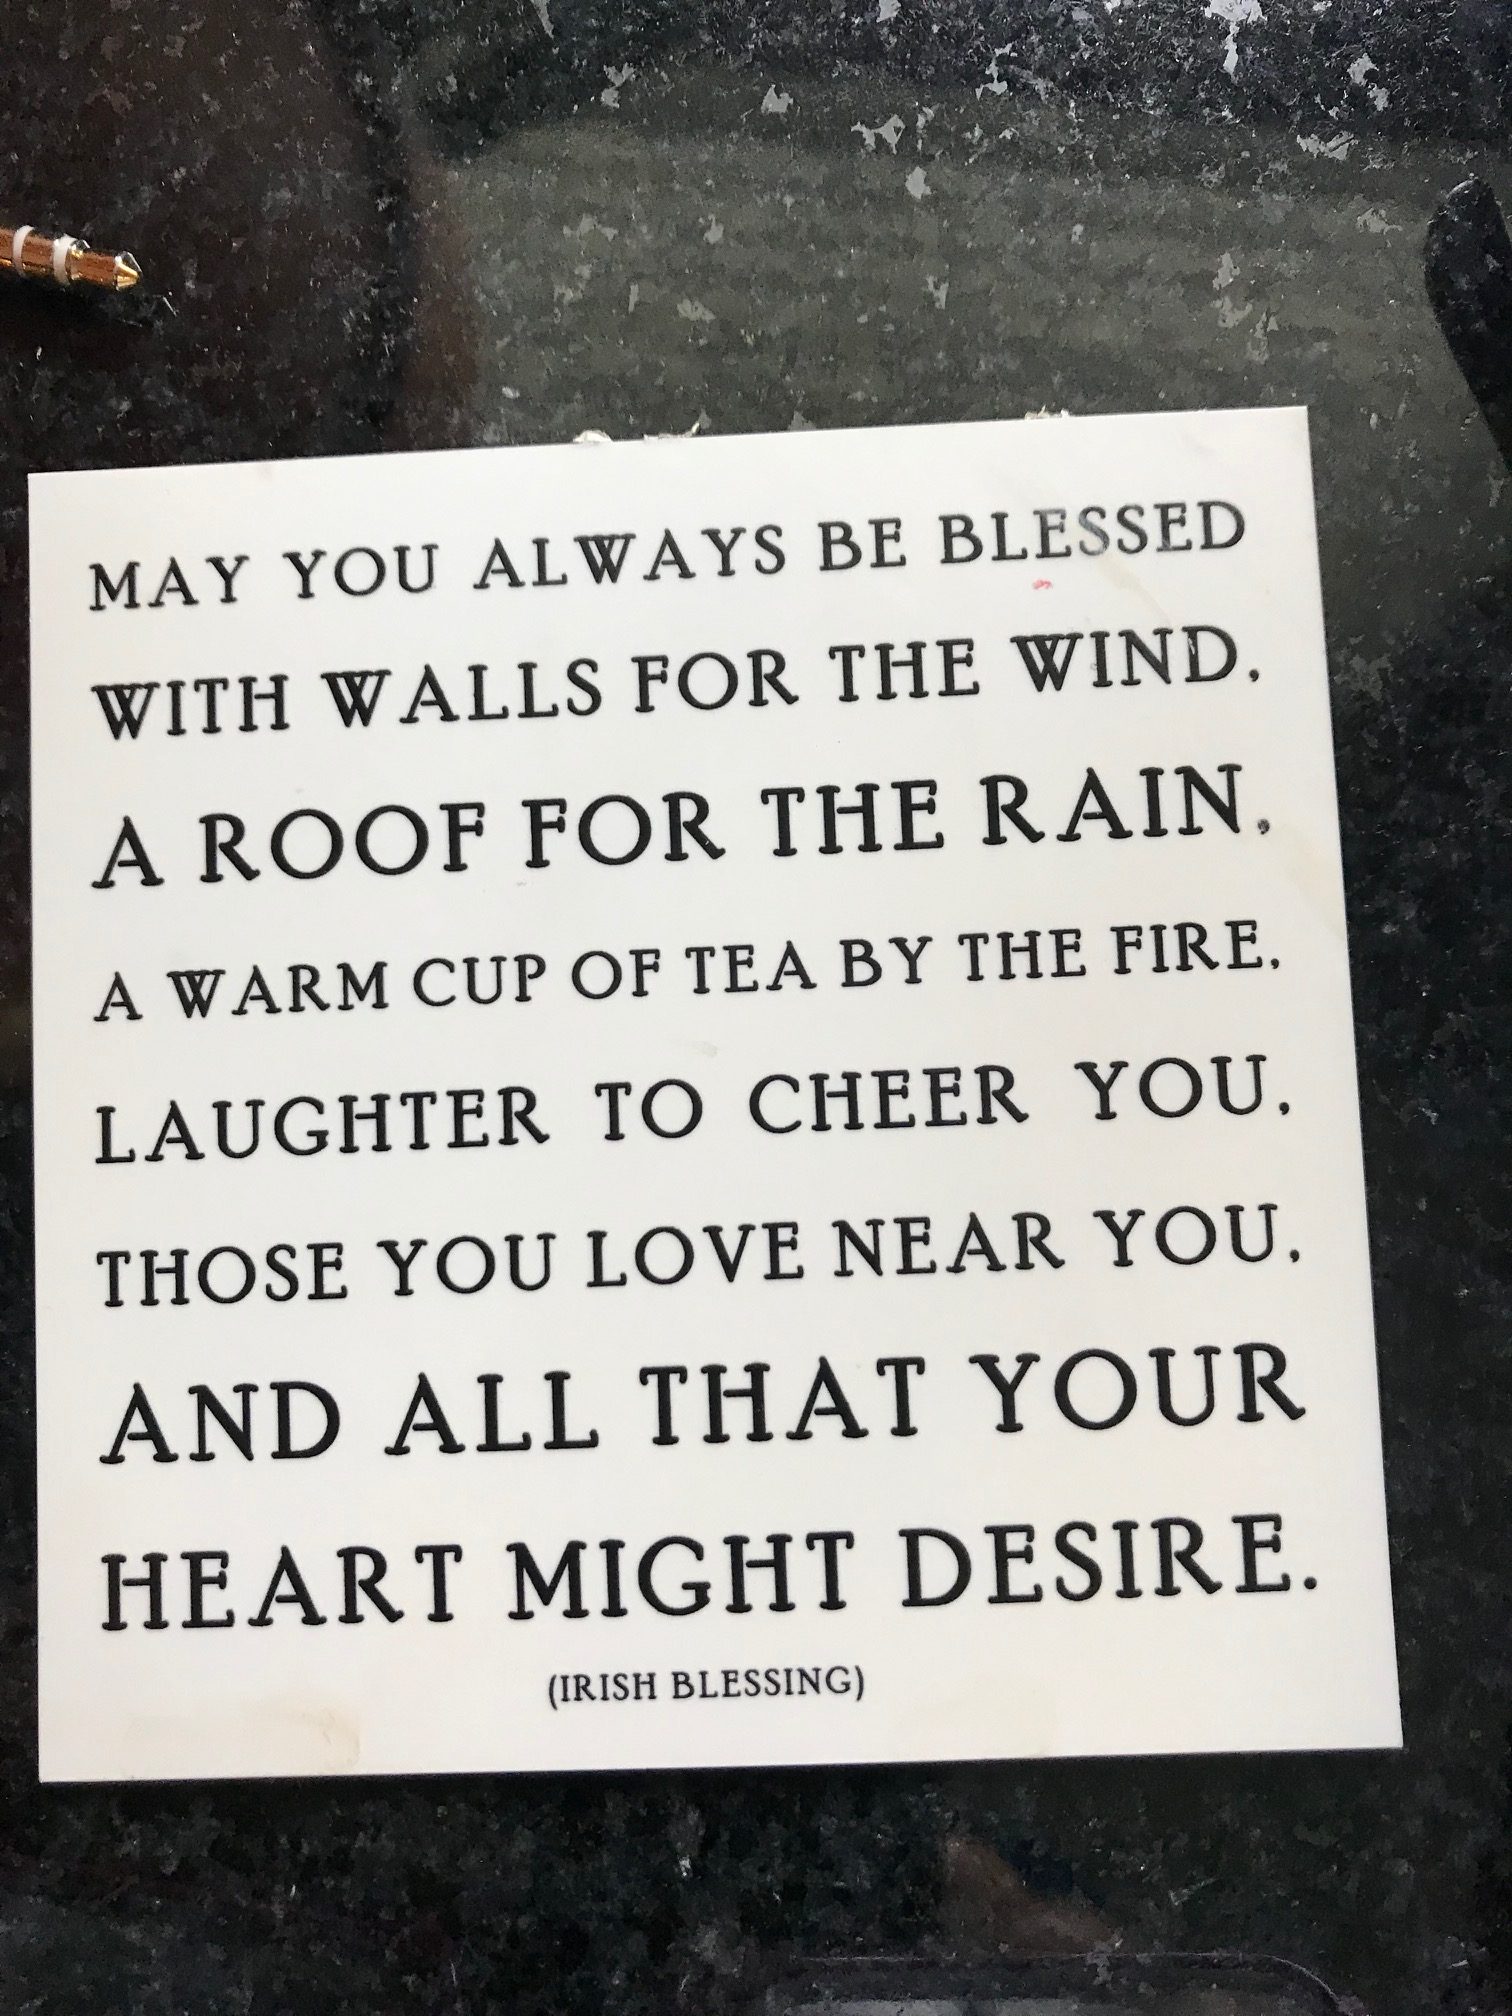 MAY YOU ALWAYS BE BLESSED
WITH WALLS FOR THE WIND,
A ROOF FOR THE RAIN,
A WARM CUP OF TEA BY THE FIRE,
LAUGHTER TO CHEER YOU,
THOSE YOU LOVE NEAR YOU,
AND ALL THAT YOUR
HEART MIGHT DESIRE.
(IRISH BLESSING)